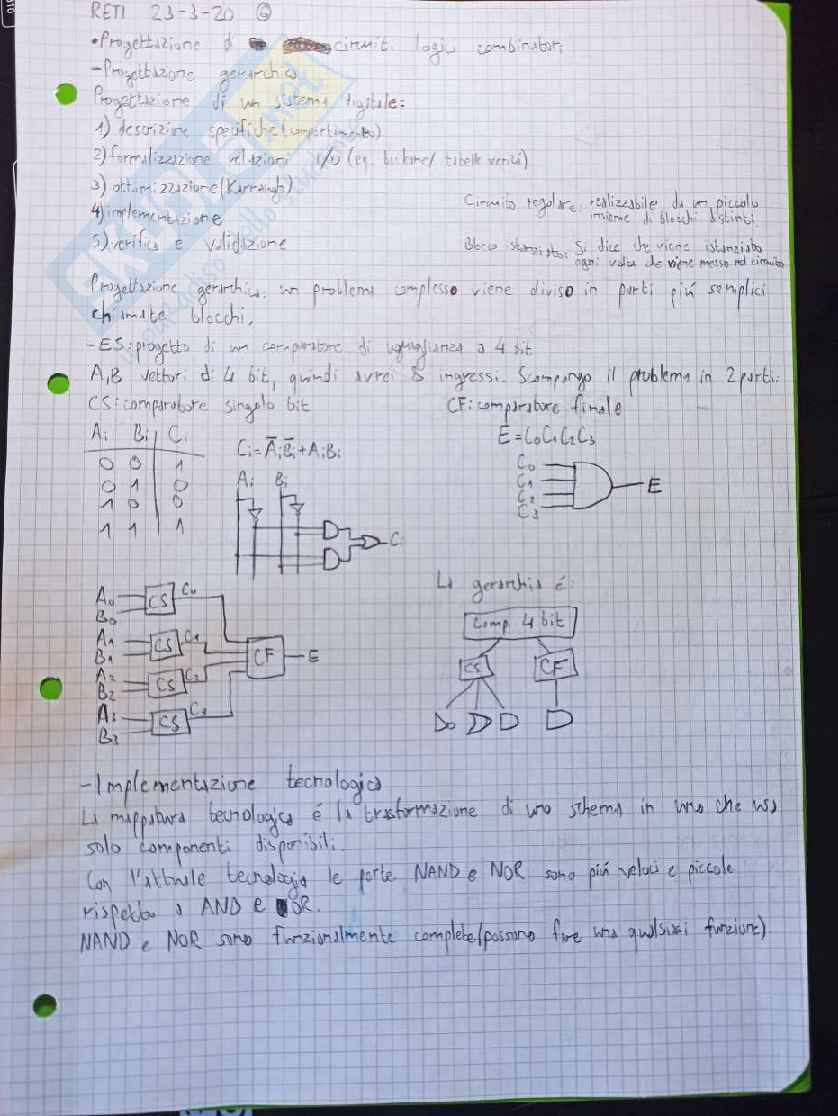 RETI 23-3-20 6
•Progettazione di circuiti logici combinatori
-Progettazione gerarchica
Progettazione di un sistema digitale:
1) descrizione specifiche (comportimento)
2) formalizzazione relazioni I/O (eq. booleane/ tabelle verità)
3) ottimizzazione (Karnaugh)
4) implementazione
5) verifica e validazione
Circuito regolare: realizzabile da un piccolo
insieme di blocchi distinti.
Blocco istanziato: Si dice che viene istanziato
ogni volta che viene messo nel circuito
Progettazione gerarchica: un problema complesso viene diviso in parti più semplici
chiamate blocchi.
-ES: progetto di un comparatore di uguaglianza a 4 bit
A,B vettori di 4 bit, quindi avrei 8 ingressi. Scompongo il problema in 2 parti:
CS: comparatore singolo bit
CF: comparatore finale
Ai Bi Ci
0 0 1
0 1 0
1 0 0
1 1 1
Ci = A̅iB̅i + AiBi
Ai Bi
C
E = C0C1C2C3
C0
C1
C2
C3
E
A0
B0
CS
C0
A1
B1
CS
C1
A2
B2
CS
C2
A3
B3
CS
C3
CF
E
La gerarchia è:
Comp 4 bit
CS CF
-Implementazione tecnologica
La mappatura tecnologica é la trasformazione di uno schema in uno che usa
solo componenti disponibili.
Con l'attuale tecnologia le porte NAND e NOR sono più veloci e piccole
rispetto a AND e OR.
NAND e NOR sono funzionalmente complete (possono fare una qualsiasi funzione).